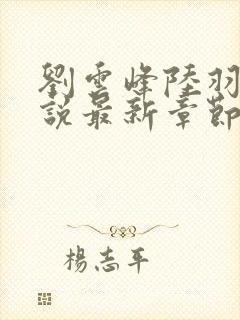 劉雲峰陸羽
說最新章節
楊志平